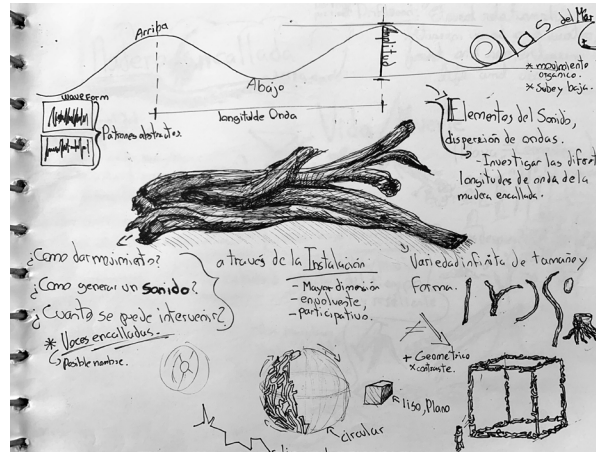 Arriba
Abajo
longitud de Onda
Amplitud
Olas del Mar
* movimiento
organico.
* Sube y baja.
wave Form
Patrones abstractos.
Elementos del Sonido,
dispersión de ondas.
- Investigar las
longitudes de onda de la
madera encallada.
¿Como dar movimiento?
¿Como generar un sonido?
¿Cuanto se puede intervenir?
* Voces encalladas.
Posible nombre.
a través de la Instalación
- Mayor dimensión
- envolvente
- participativo.
Variedad infinita de tamaño y
Forma.
+ Geometrico
* contraste.
liso, Plano
circular